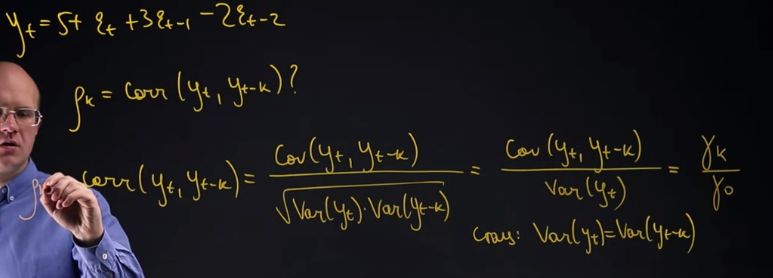 y_t = 5 + ε_t + 3ε_{t-1} - 2ε_{t-2}
ρ_k = Corr(y_t, y_{t-k})?
ρ corr(y_t, y_{t-k}) = Cov(y_t, y_{t-k}) / √(Var(y_t)·Var(y_{t-k})) = Cov(y_t, y_{t-k}) / Var(y_t) = γ_k / γ_0
стац: Var(y_t) = Var(y_{t-k})